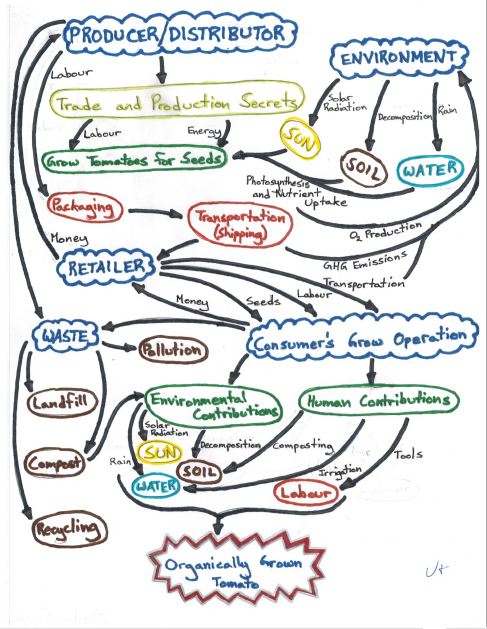 PRODUCER/DISTRIBUTOR
ENVIRONMENT
Labour
Solar
Radiation
Decomposition
Rain
Trade and Production Secrets
Labour
Energy
SUN
Grow Tomatoes For Seeds
SOIL
WATER
Photosynthesis
and Nutrient
Uptake
Packaging
Transportation
(Shipping)
O2 Production
Money
GHG Emissions
RETAILER
Transportation
Money
Seeds
Labour
WASTE
Pollution
Consumer's Grow Operation
Landfill
Environmental
Contributions
Human Contributions
Solar
Radiation
Decomposition
Composting
Tools
Compost
Rain
SUN
SOIL
Irrigation
WATER
Labour
Recycling
Organically Grown
Tomato